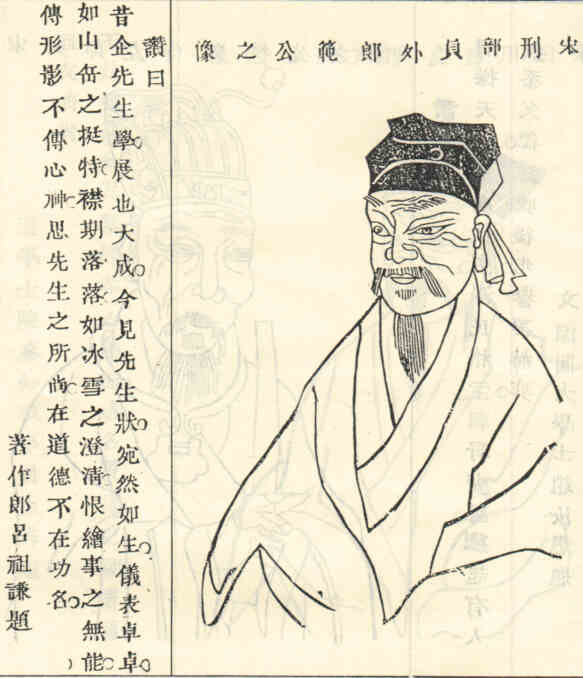 宋刑部員外郎範公之像
讚曰
昔企先生學展也大成今見先生狀宛然如生儀表卓卓
如山岳之挺特襟期落落如冰雪之澄清恨繪事之無能
傳形影不傳心神思先生之所尚在道德不在功名
著作郎呂祖謙題